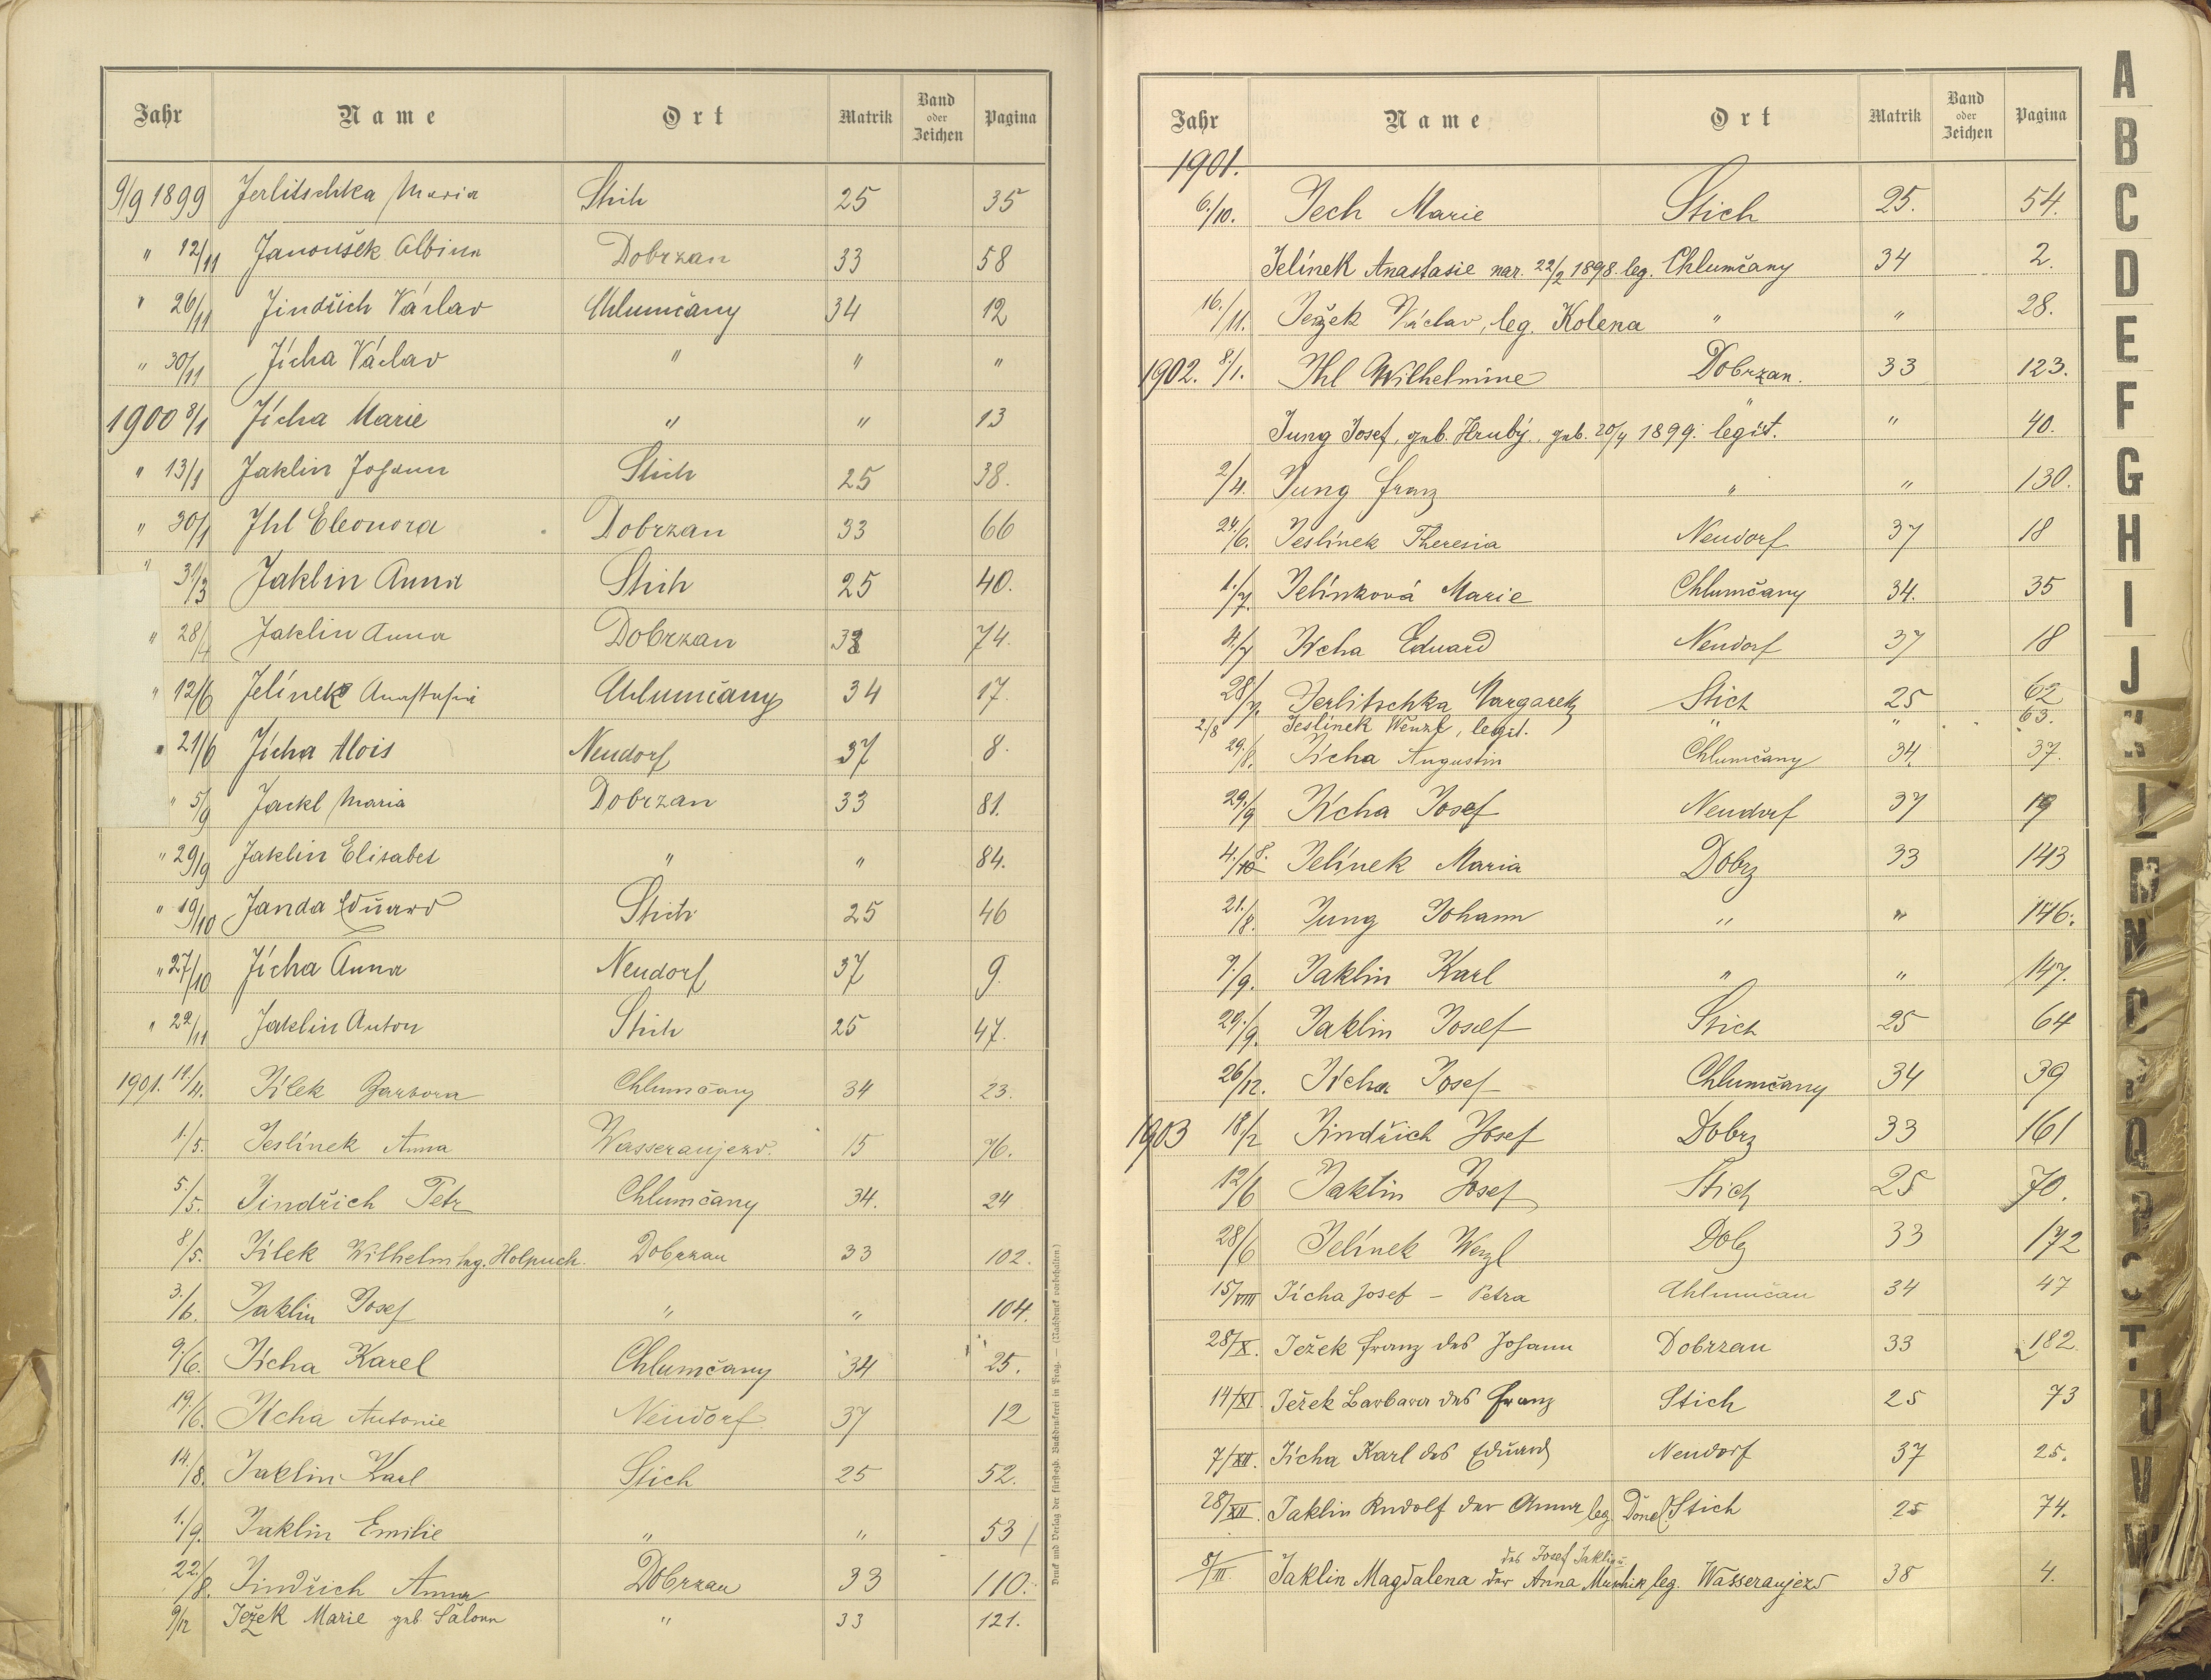 Jahr Name Ort Matrik Band oder Zeichen Pagina
9/9 1899 Jerlitschka Maria Stich 25 35
" 12/11 Janoušek Albina Dobrzan 33 58
" 26/11 Jindřich Václav Chlumčany 34 12
" 30/11 Jícha Václav " " "
1900 8/1 Jícha Marie " " 13
" 13/1 Jaklin Johann Stich 25 38.
" 30/1 Jhl Eleonora Dobrzan 33 66
" 31/3 Jaklin Anna Stich 25 40.
" 28/4 Jaklin Anna Dobrzan 33 74.
" 12/6 Jelínek Anastasia Chlumčany 34 17.
" 21/6 Jícha Alois Neudorf 37 8.
" 5/9 Jackl Maria Dobrzan 33 81.
" 29/9 Jaklin Elisabet " " 84.
" 19/10 Janda Eduard Stich 25 46
" 27/10 Jícha Anna Neudorf 37 9.
" 22/11 Jaklin Anton Stich 25 47.
1901. 14./4. Jílek Barbora Chlumčany 34 23.
1./5. Jeslínek Anna Wasseraujezd. 15 76.
5./5. Jindřich Petr Chlumčany 34. 24
8/5. Jílek Wilhelm leg. Holpuch. Dobrzan 33 102.
3./6. Jaklin Josef " " 104.
9./6. Jícha Karel Chlumčany 34 25.
19./6. Jícha Antonie Neudorf 37 12
14./8. Jaklin Karl Stich 25 52.
1./9. Jaklin Emilie " " 53
22./8. Jindřich Anna Dobrzan 33 110.
9/12 Ježek Marie geb. Šalom " 33 121.
Druck und Verlag der fürsterzb. Buchdruckerei in Prag. — (Nachdruck vorbehalten.)
Jahr Name Ort Matrik Band oder Zeichen Pagina
1901.
6./10. Jech Marie Stich 25. 54.
Jelínek Anastasie nar. 22/2 1898. leg. Chlumčany 34 2.
16./11. Ježek Václav, leg. Kolena " " 28.
1902. 8./1. Jhl Wilhelmine Dobrzan. 33 123.
Jung Josef, geb. Hrubý, geb. 20/4 1899. legit. " " 40.
2/4. Jung Franz " " 130.
24./6. Jeslínek Theresia Neudorf 37 18
1./7. Jelínková Marie Chlumčany 34. 35
4./7 Jícha Eduard Neudorf 37 18
28/7. Jerlitschka Margareth Stich 25 62
2/8 Jeslínek Wenzl, legit. " " 63.
29./8. Jícha Augustin Chlumčany 34. 37.
29./9 Jícha Josef Neudorf 37 19
4./8. Jelínek Maria Dobrz 33 143
21./8. Jung Johann " " 146.
7./9. Jaklin Karl " " 147.
29./9. Jaklin Josef Stich 25 64
26/12. Jícha Josef Chlumčany 34 39
1903 18/2 Jindřich Josef Dobrz 33 161
12/6 Jaklin Josef Stich 25 70.
28/6 Jelínek Wenzl Dobrz 33 172
15/VIII Jícha Josef – Petra Chlumčan 34 47
28/X. Ježek Franz des Johann Dobrzan 33 182.
14/XI. Ježek Barbara des Franz Stich 25 73
7/XII. Jícha Karl des Eduard Neudorf 37 25.
28/XII. Jaklin Rudolf der Anna leg. Stich 25 74.
des Josef Jaklin u.
8/III Jaklin Magdalena der Anna leg. Wasseraujezd 38 4.
A
B
C
D
E
F
G
H
I
J
K
L
M
N
O
P
Q
R
S
T
U
V
W